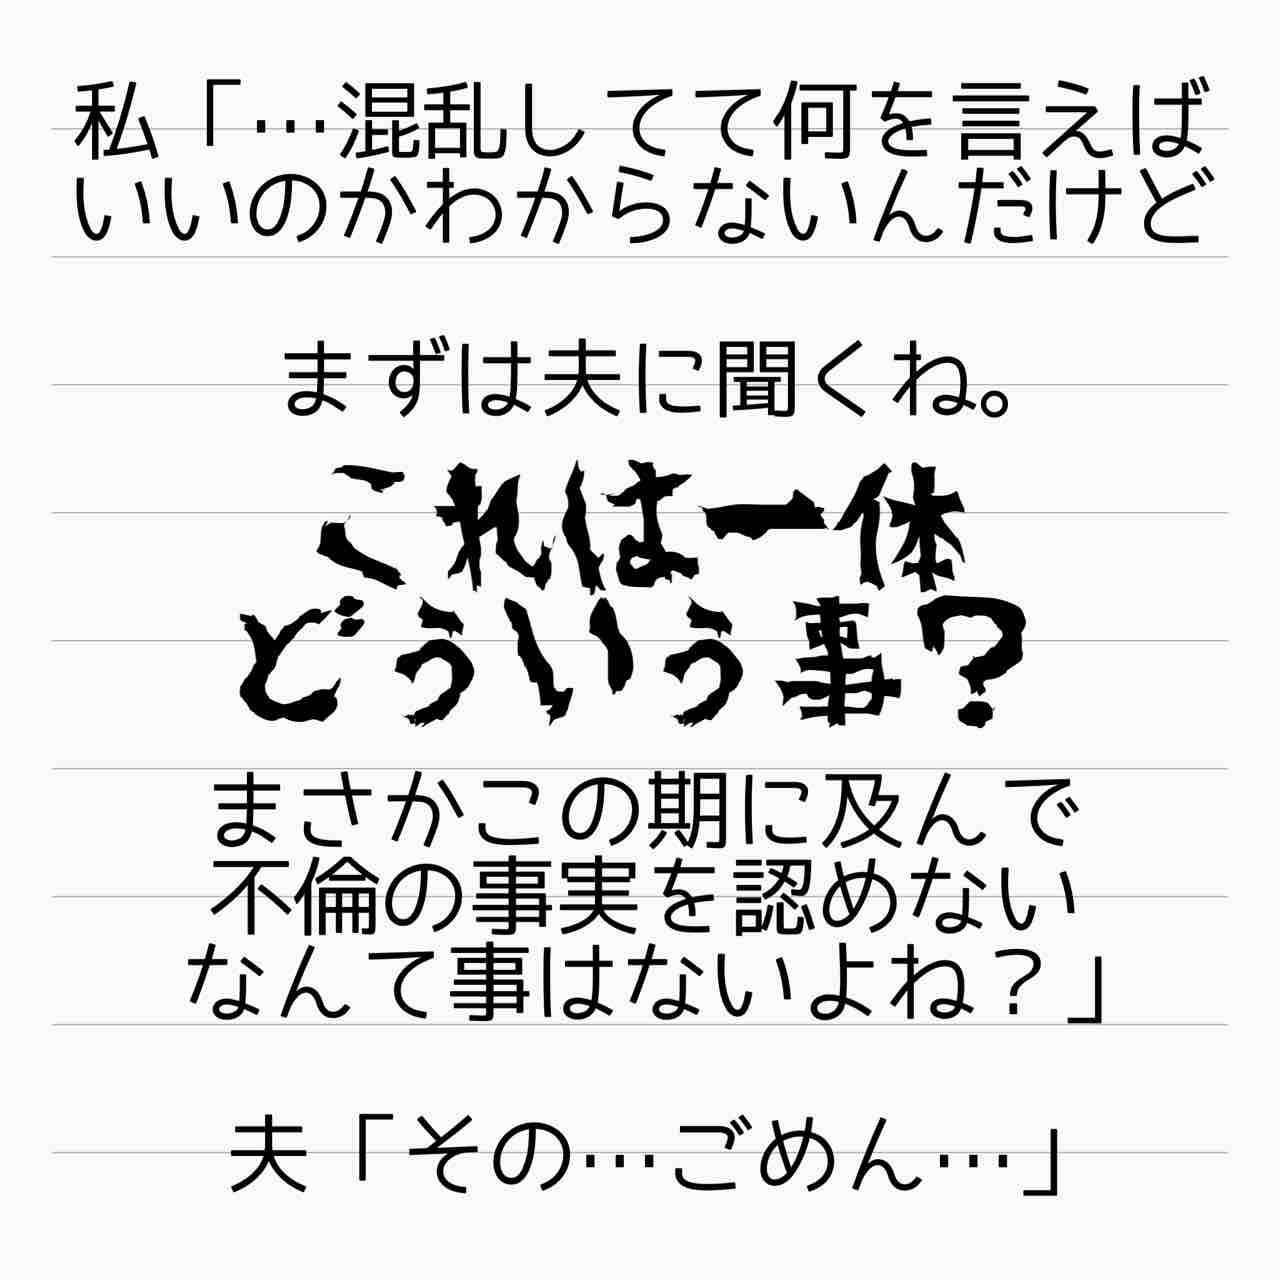 私「…混乱してて何を言えば
いいのかわからないんだけど
まずは夫に聞くね。
これは一体
どういう事?
まさかこの期に及んで
不倫の事実を認めない
なんて事はないよね？」
夫「その…ごめん…」